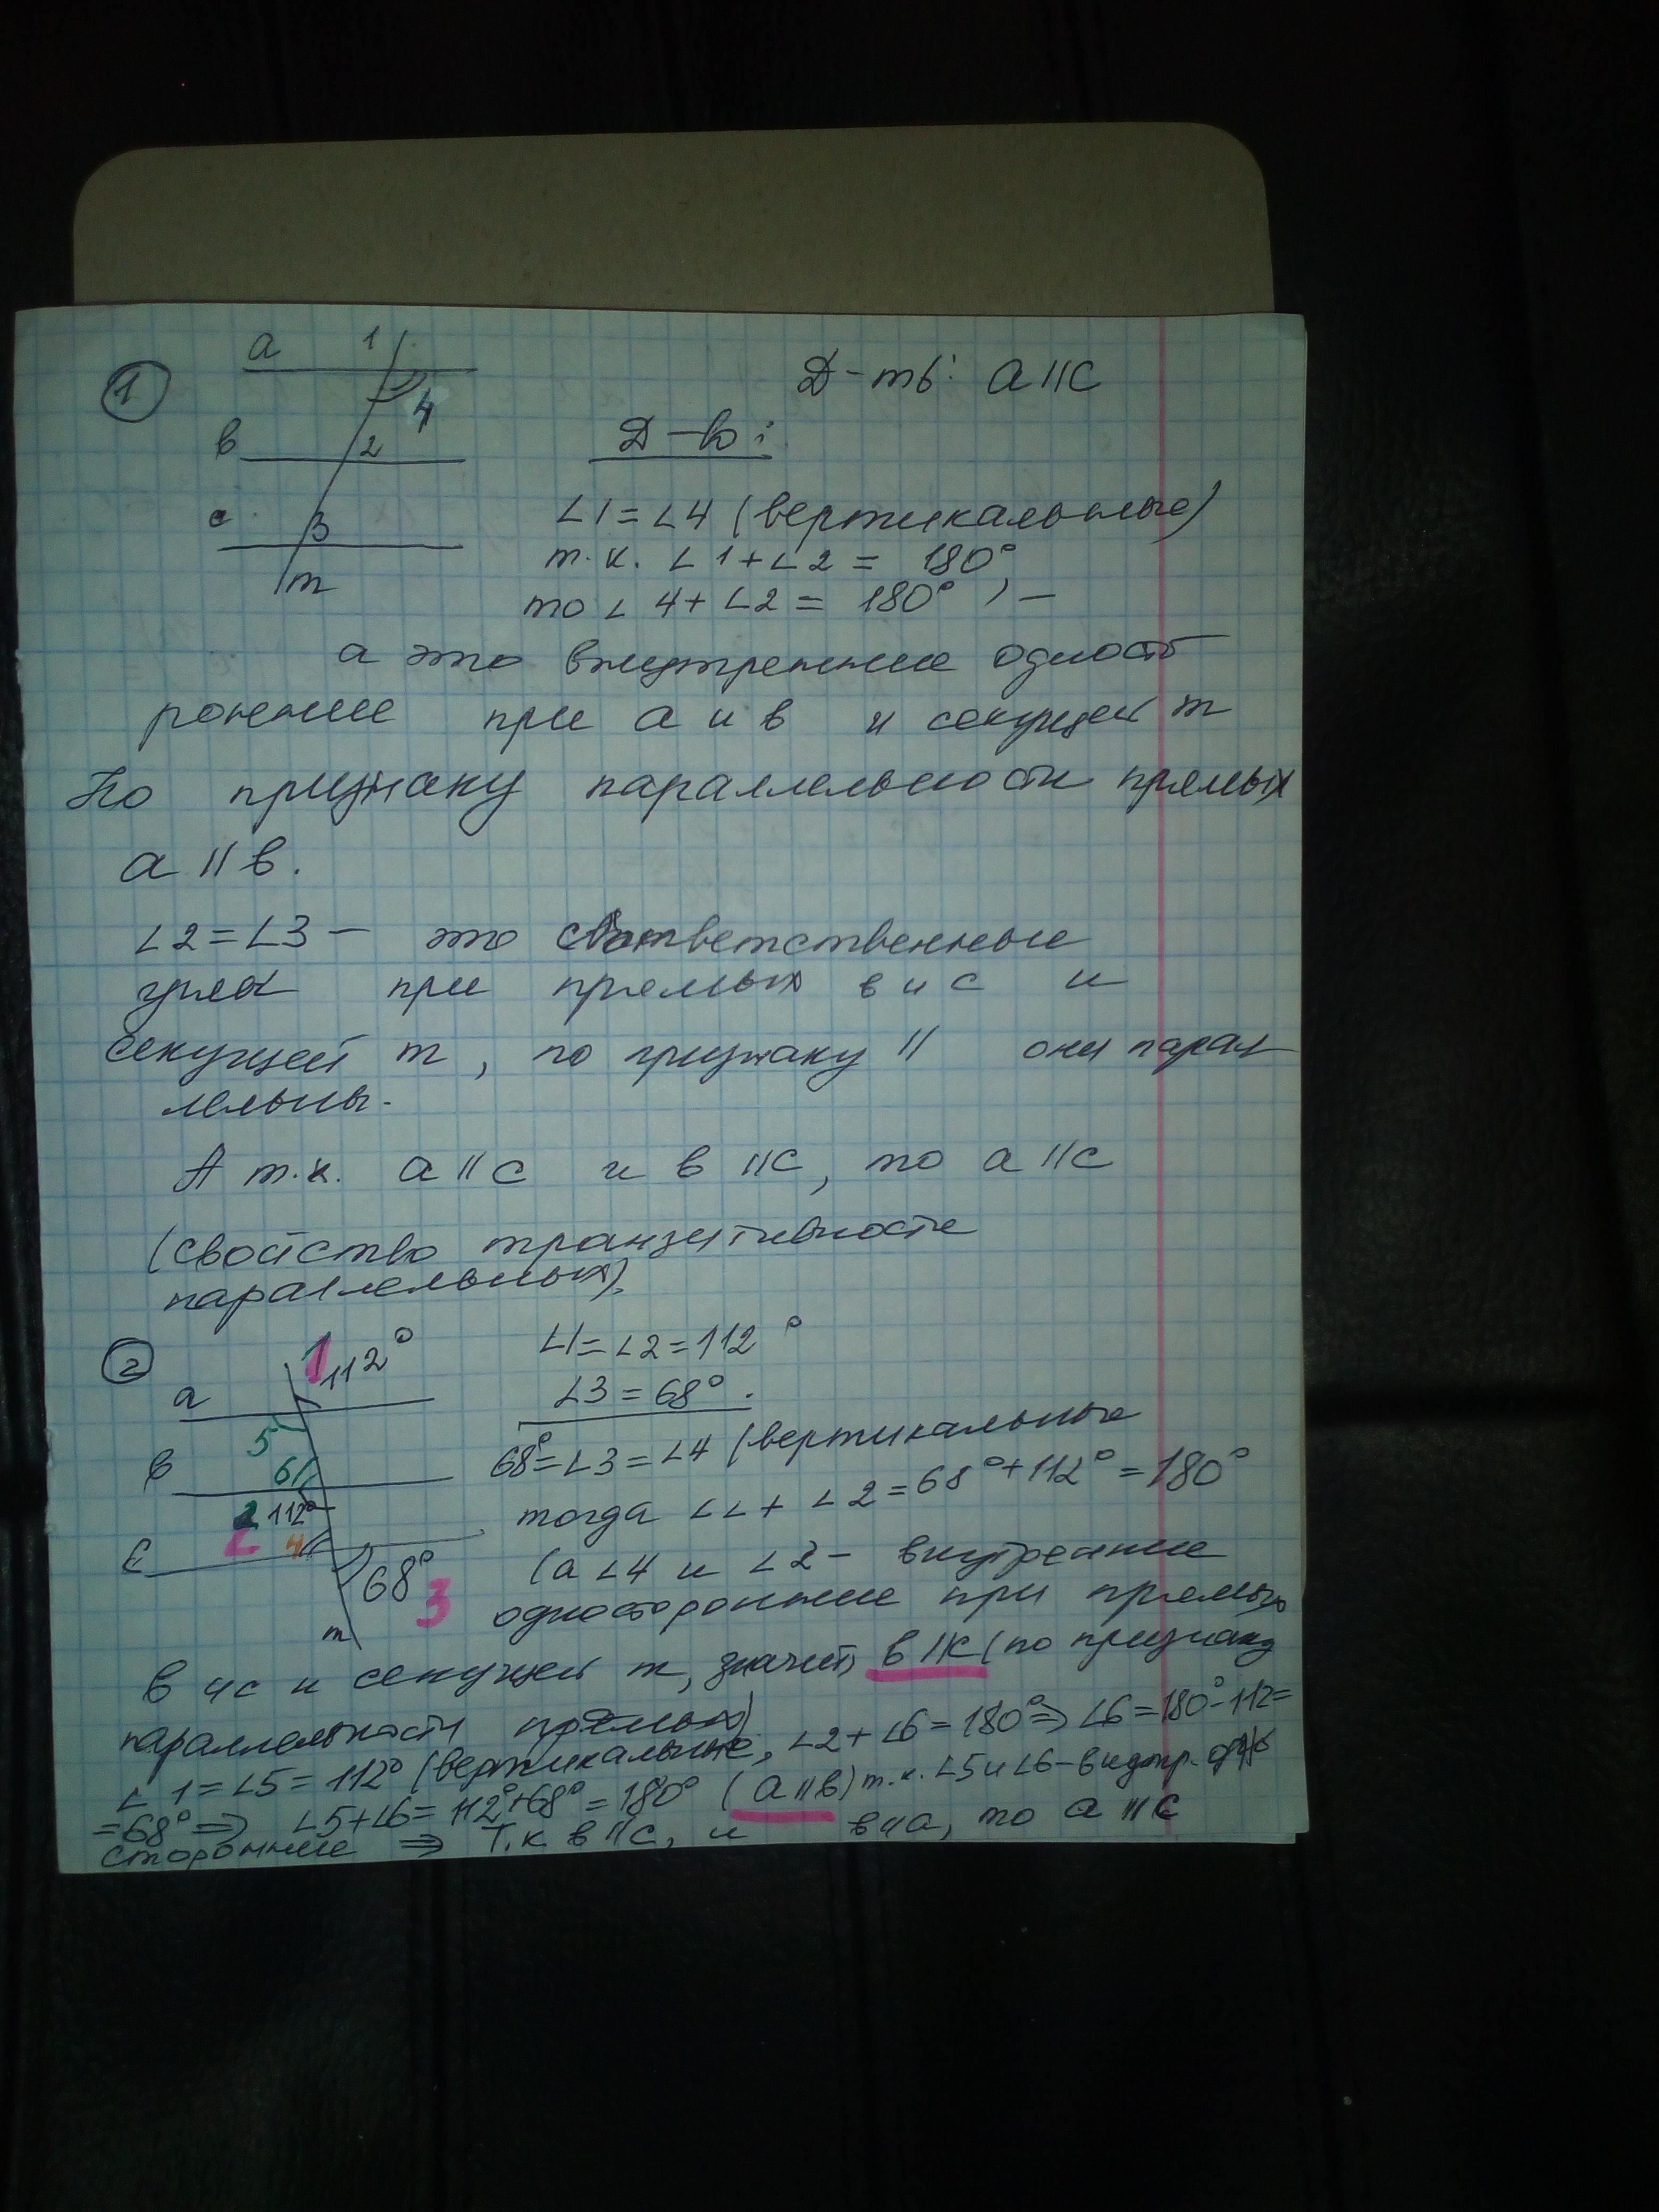 1
a 1
4
в 2
с 3
m
Д-ть: a||c
Д-во:
∠1=∠4 (вертикальные)
т.к. ∠1+∠2= 180°,
то ∠4+∠2= 180°, –
а это внутренние односто
ронние при a и в и секущей m
По признаку параллельности прямых
a||в.
∠2=∠3 – это соответственные
углы при прямых в и с и
секущей m, по признаку || они парал
лельны.
А т.к. a||c и в||c, то a||c
(свойство транзитивности
параллельных).
2
1 112°
a
5
в 6
2 112°
2 4
с
68° 3
m
∠1=∠2=112°
∠3=68°.
68°=∠3=∠4 (вертикальные
тогда ∠∠+∠2=68°+112°=180°
(а ∠4 и ∠2 – внутренние
односторонние при прямых
в и с и секущей m, значит, в||с (по признаку
параллельности прямых)
∠1=∠5=112° (вертикальные, ∠2+∠6=180°⇒∠6=180°-112=
=68°⇒ ∠5+∠6=112°+68°=180° (a||в) т.к. ∠5 и ∠6 – внутр. одно
сторонние ⇒ т.к в||с, и в и a, то a||c